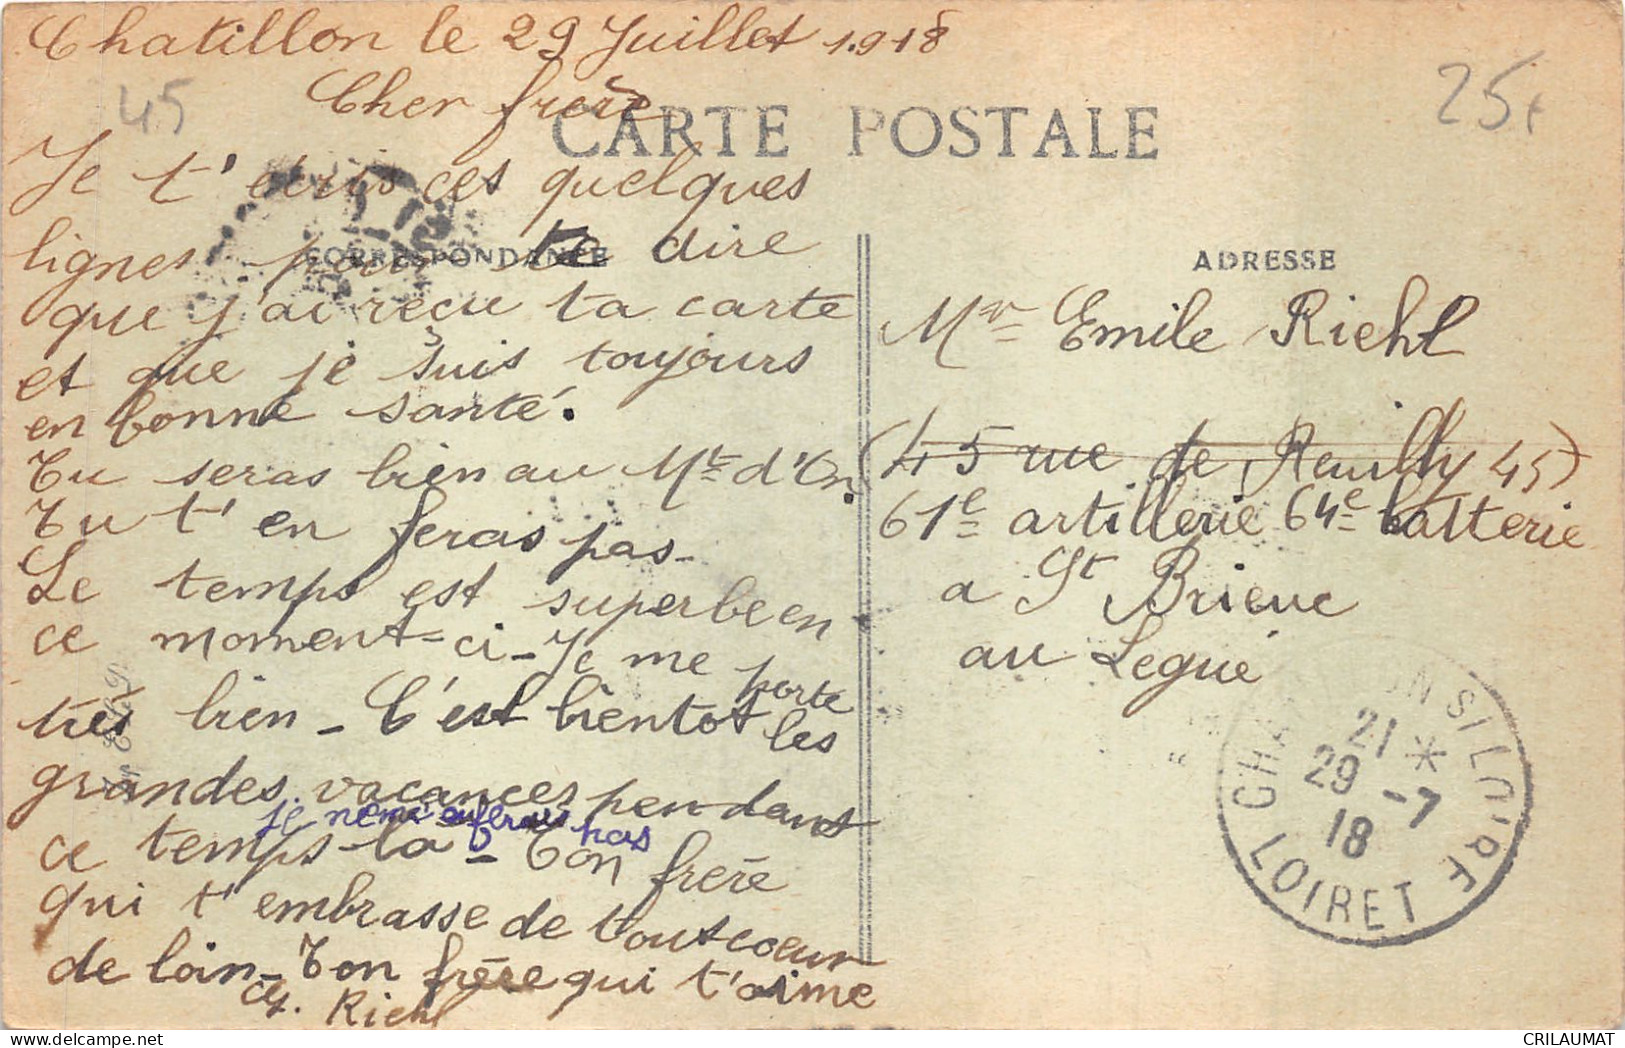 Chatillon le 29 Juillet 1918
45
25
Cher frère
CARTE POSTALE
Je t'écris ces quelques
lignes pour te dire
CORRESPONDANCE
que j'ai reçu ta carte
et que je suis toujours
en bonne santé.
Tu seras bien au Mt d'Or.
Tu t'en feras pas_
Le temps est superbe en
ce moment-ci_Je me porte
très bien_C'est bientot les
grandes vacances pendant
je
pas
ce temps-la_Ton frère
qui t'embrasse de tout coeur
de loin_Ton frère qui t'aime
Riehl
ADRESSE
Mr Emile Riehl
(45 rue de Reuilly 45)
61e artillerie 64e batterie
a St Brieuc
au Legué
CHATILLON S/ LOIRE
21 *
29 -7
18
LOIRET
delcampe.net
CRILAUMAT